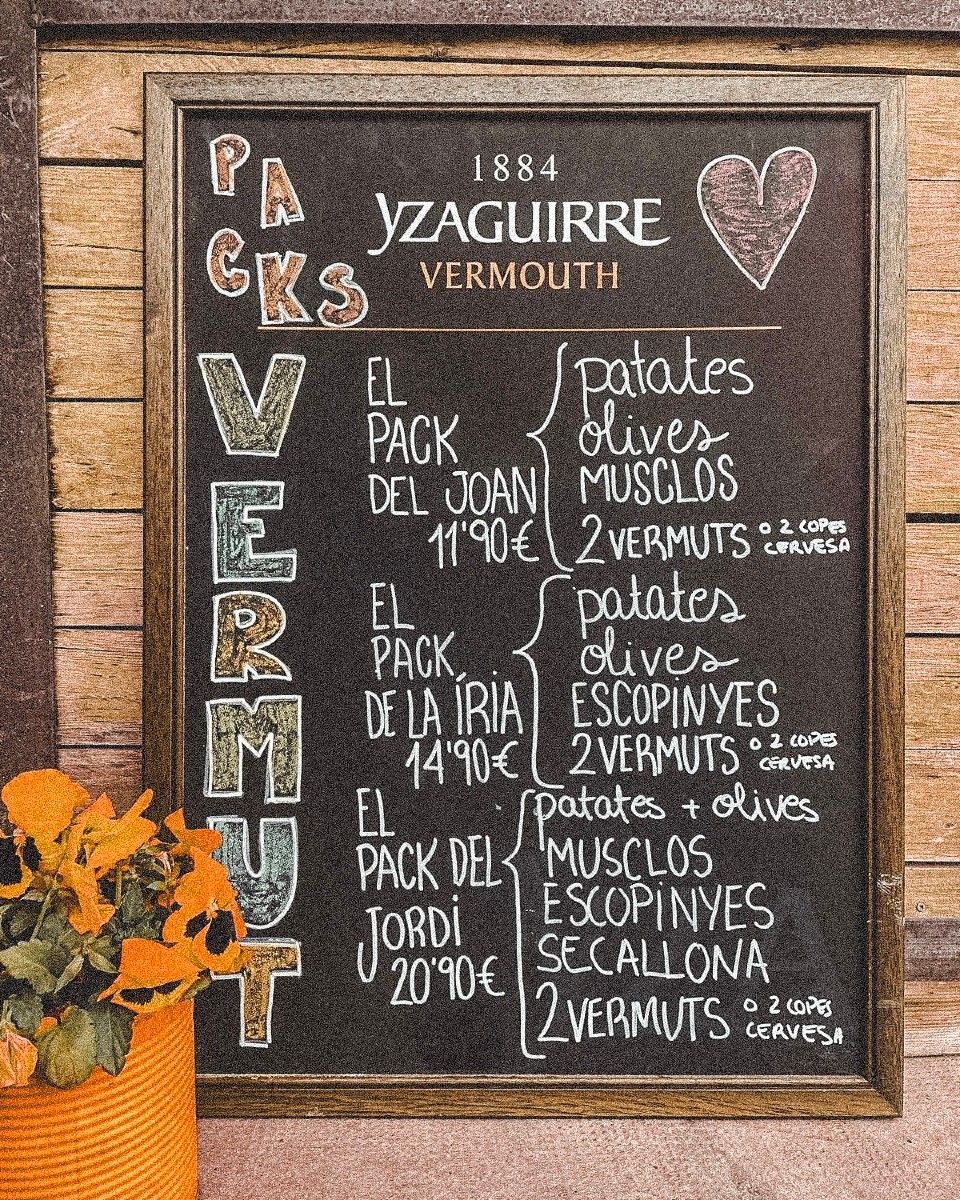 PACKS
VERMUT
1884
YZAGUIRRE
VERMOUTH
EL
PACK
DEL JOAN
11'90€
patates
olives
MUSCLOS
2 VERMUTS o 2 COPES
CERVESA
EL
PACK
DE LA ÍRIA
14'90€
patates
olives
ESCOPINYES
2 VERMUTS o 2 COPES
CERVESA
EL
PACK DEL
JORDI
20'90€
patates + olives
MUSCLOS
ESCOPINYES
SECALLONA
2 VERMUTS o 2 COPES
CERVESA